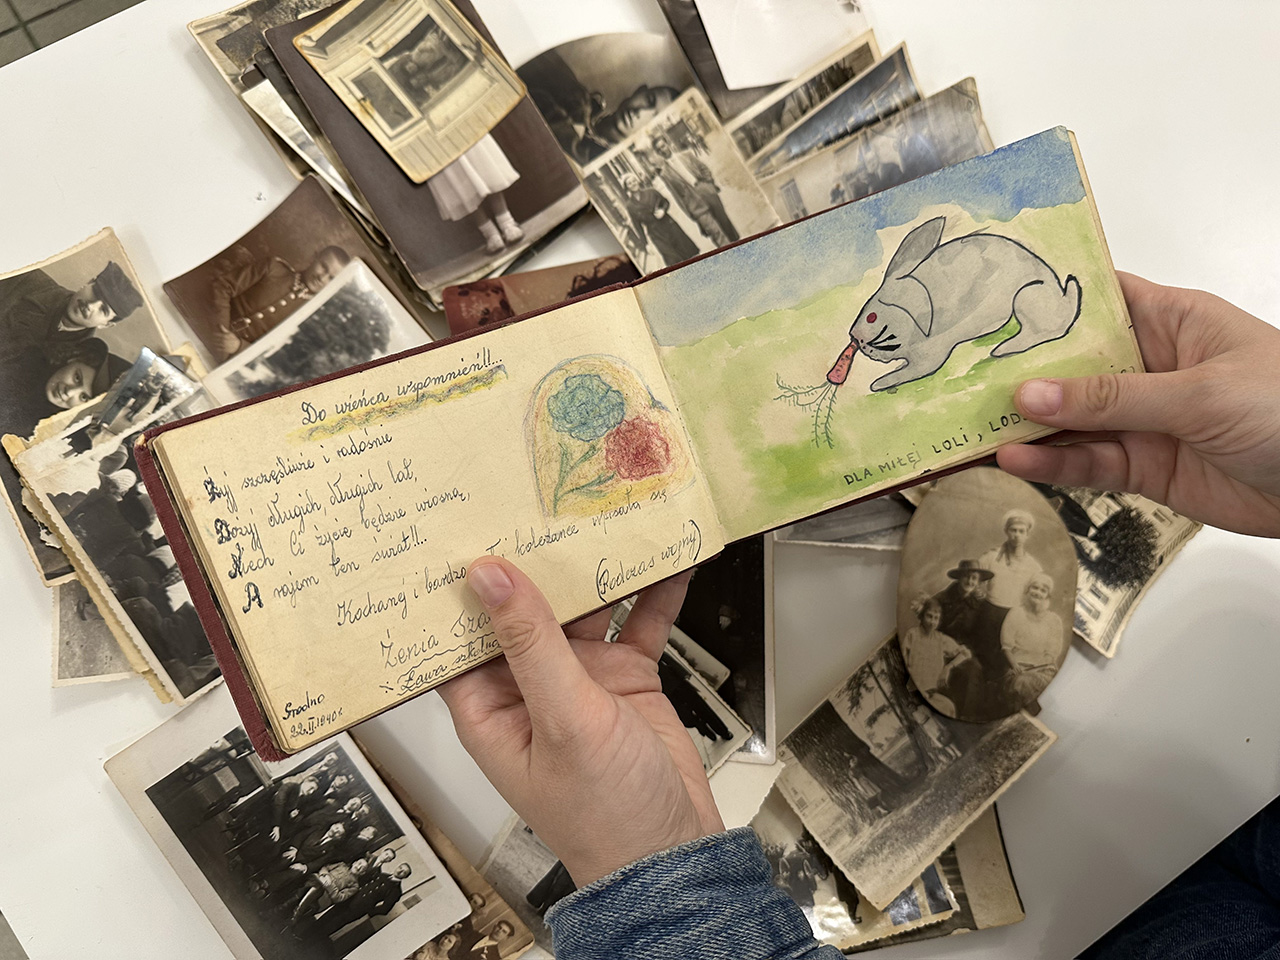 Do wieńca wspomnień!!...
Żyj szczęśliwie i radośnie
Dożyj długich, długich lat,
Niech Ci życie będzie wiosną,
A rajem ten świat!!..
Kochanej i bardzo koleżance wpisała się
Żenia
Ława szkolna
(Podczas wojny)
Grodno
22.II.1940r.
DLA MIŁEJ LOLI,